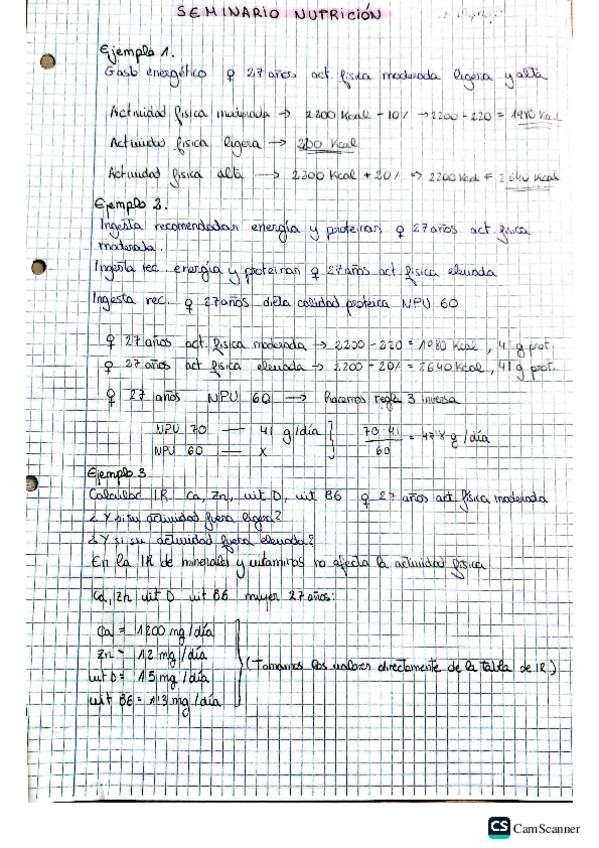 SEMINARIO NUTRICIÓN
Ejemplo 1.
Gasto energético ♀ 27 años act. física moderada ligera y alta
Actividad física moderada → 2200 Kcal - 10% → 2200 - 220 = 1980 Kcal
Actividad física ligera → Kcal
Actividad física alta → 2200 Kcal + 20% ⇒ 2200 Kcal = 2640 Kcal
Ejemplo 2.
Ingesta recomendadas energía y proteinas ♀ 27 años act. física
moderada.
Ingesta rec. energía y proteinas ♀ 27 años act. física elevada
Ingesta rec. ♀ 27 años dieta calidad proteica NPU 60
♀ 27 años act. física moderada → 2200 - 220 = 1980 Kcal, 41 g prot.
♀ 27 años act. física elevada → 2200 - 20% = 2640 Kcal, 41 g prot.
♀ 27 años NPU 60 → Hacemos regla 3 inversa
NPU 70 — 41 g/día
NPU 60 — x
70·41 / 60 = 47'8 g/día
Ejemplo 3
Calcular I.R. Ca, Zn, vit D, vit B6 ♀ 27 años act. física moderada
¿Y si su actividad fuera ligera?
¿Y si su actividad fuera elevada?
En la IR de minerales y vitaminas no afecta la actividad física
Ca, Zn vit D vit B6 mujer 27 años:
Ca = 1200 mg/día
Zn = 12 mg/día
vit D = 15 mg/día
vit B6 = 1'3 mg/día
(Tomamos los valores directamente de la tabla de IR)
CS CamScanner